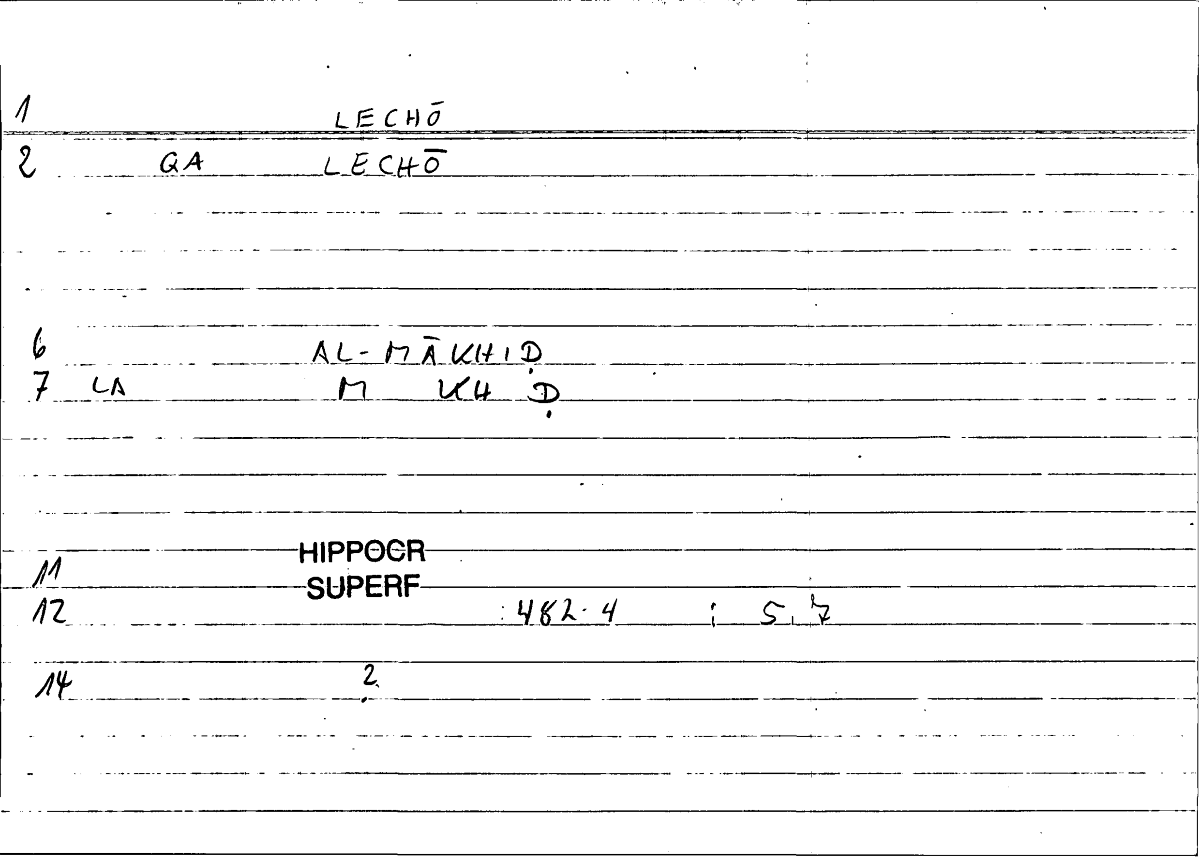 1 LECHŌ
2 GA LECHŌ
6 AL-MĀKHIḌ
7 LA M KH Ḍ
11 HIPPOCR
SUPERF
12 :482.4 ; 5.7
14 ?